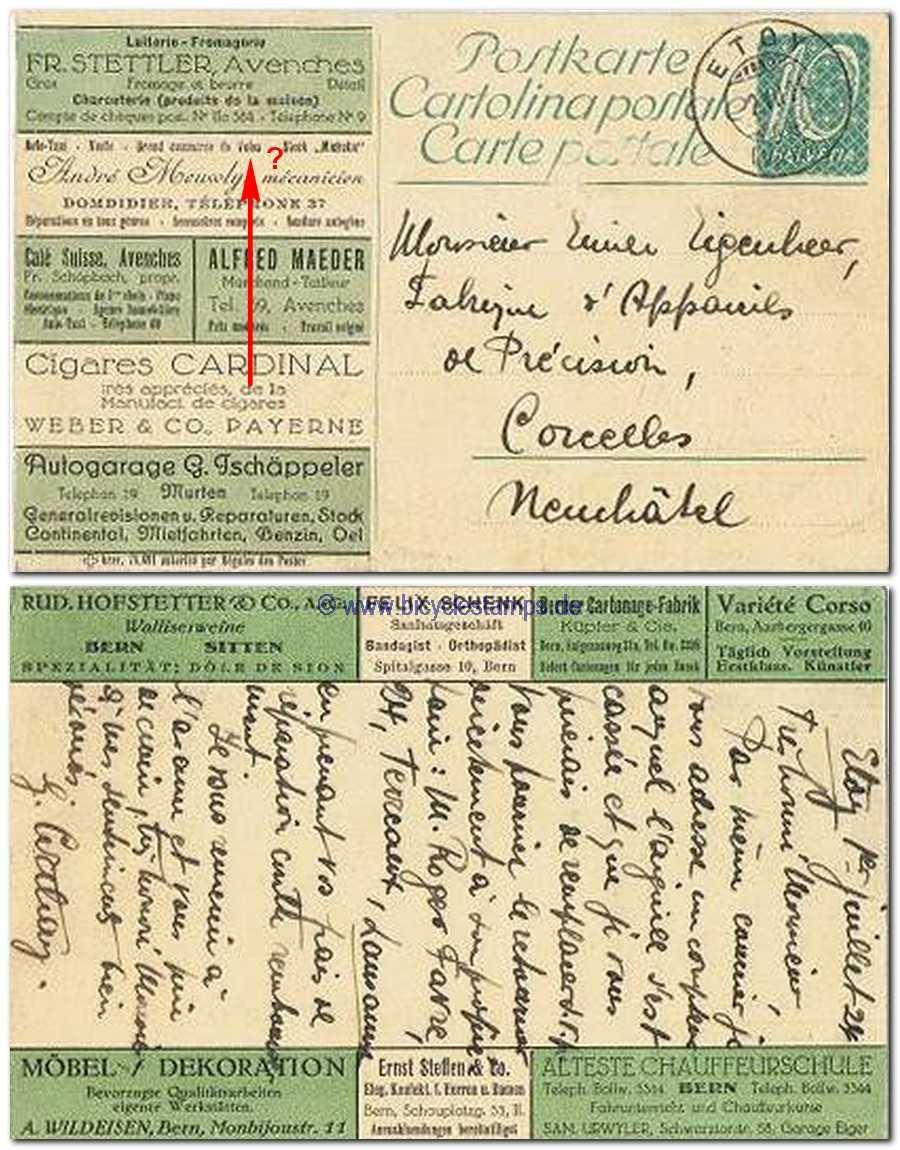 Laiterie - Fromagerie
FR. STETTLER, Avenches
Gros Fromage et beurre Détail
Charcuterie (produits de la maison)
Compte de chèques post. Nº IIa 564 - Téléphone Nº 9
Auto-Taxi - Vente - Grand commerce de Vélos - Stock „Michelin“
?
André Mousoly, mécanicien
DOMDIDIER, TÉLÉPHONE 37
Réparations en tous genres - Accessoires complets - Soudure autogène
Café Suisse, Avenches
Fr. Schöpbach, propr.
Consommations de 1ers choix - Piano
Auto-Taxi - Téléphone 60
ALFRED MAEDER
Marchand - Tailleur
Tel. 59, Avenches
Prix modérés - Travail soigné
Cigares CARDINAL
très appréciés, de la
Manufact. de cigares
WEBER & CO., PAYERNE
Autogarage G. Tschäppeler
Telephon 19 Murten Telephon 19
Generalrevisionen u. Reparaturen, Stock
Continental, Mietfahrten, Benzin, Oel
Postkarte
Cartolina postale
Carte postale
ETOY
10
HELVETIA
Monsieur Emien Eigenheer,
Fabrique d'Appareils
de Précision,
Corcelles
Neuchâtel
© www.bicyclestamps.de
RUD. HOFSTETTER & Co., A.G.
Walliserweine
BERN SITTEN
SPEZIALITÄT: DÔLE DE SION
FELIX SCHENK
Sanitätsgeschäft
Bandagist - Orthopädist
Spitalgasse 10, Bern
Berner Cartonage-Fabrik
Küpfer & Cie.
liefert Cartonagen für jeden Zweck
Variété Corso
Bern, Aarbergergasse 40
Täglich Vorstellung
Erstklass. Künstler
Etoy 1er juillet 24
Très honoré Monsieur,
Par même courrier je
vous adresse un compas
auquel l'aiguille s'est
cassée et que je vous
prierais de remplacer s.v.p.
Vous pourriez le retourner
directement à son proprié-
taire: M. Roger Favre,
24, Terreaux, Lausanne
en prenant vos frais de
réparation contre rembourse-
ment.
Je vous remercie à
l'avance et vous prie
de croire, très honoré Monsieur
à mes sentiments bien
dévoués.
MÖBEL / DEKORATION
Bevorzugte Qualitätsarbeiten
eigener Werkstätten.
A. WILDEISEN, Bern, Monbijoustr. 11
Ernst Steffen & Co.
Eleg. Konfekt. f. Herren u. Damen
Bern, Schauplatzg. 33, II.
Auswahlsendungen bereitwilligst
ÄLTESTE CHAUFFEURSCHULE
Teleph. Bollw. 5344 BERN Teleph. Bollw. 5344
Fahrunterricht und Chauffeurkurse
SAM. URWYLER, Schwarztorstr. 58, Garage Eiger